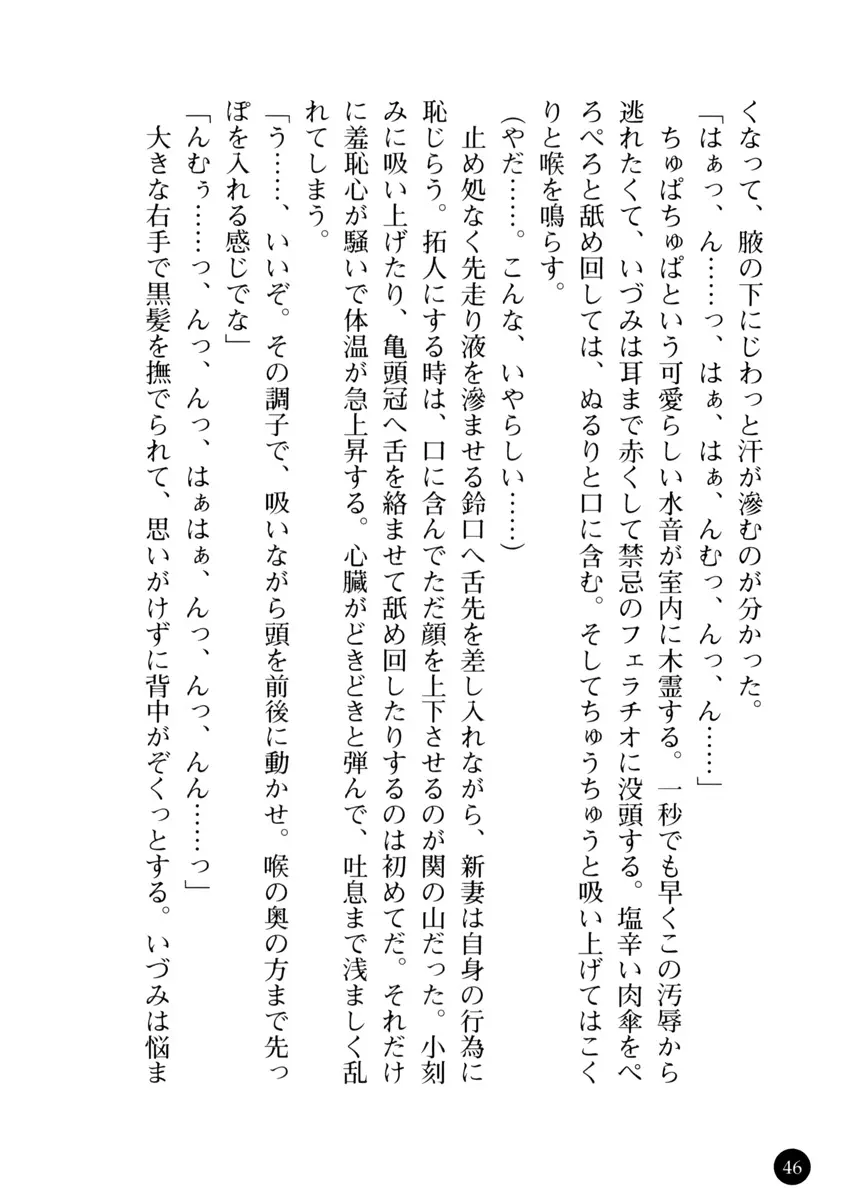 くなって、腋の下にじわっと汗が滲むのが分かった。
「はぁっ、ん……っ、はぁ、はぁ、んむっ、んっ、ん……」
ちゅぱちゅぱという可愛らしい水音が室内に木霊する。一秒でも早くこの汚辱から
逃れたくて、いづみは耳まで赤くして禁忌のフェラチオに没頭する。塩辛い肉傘をぺ
ろぺろと舐め回しては、ぬるりと口に含む。そしてちゅうちゅうと吸い上げてはこく
りと喉を鳴らす。
(やだ……。こんな、いやらしい……)
止め処なく先走り液を滲ませる鈴口へ舌先を差し入れながら、新妻は自身の行為に
恥じらう。拓人にする時は、口に含んでただ顔を上下させるのが関の山だった。小刻
みに吸い上げたり、亀頭冠へ舌を絡ませて舐め回したりするのは初めてだ。それだけ
に羞恥心が騒いで体温が急上昇する。心臓がどきどきと弾んで、吐息まで浅ましく乱
れてしまう。
「う……、いいぞ。その調子で、吸いながら頭を前後に動かせ。喉の奥の方まで先っ
ぽを入れる感じでな」
「んむぅ……っ、んっ、んっ、はぁはぁ、んっ、んっ、んん……っ」
大きな右手で黒髪を撫でられて、思いがけずに背中がぞくっとする。いづみは悩ま
46